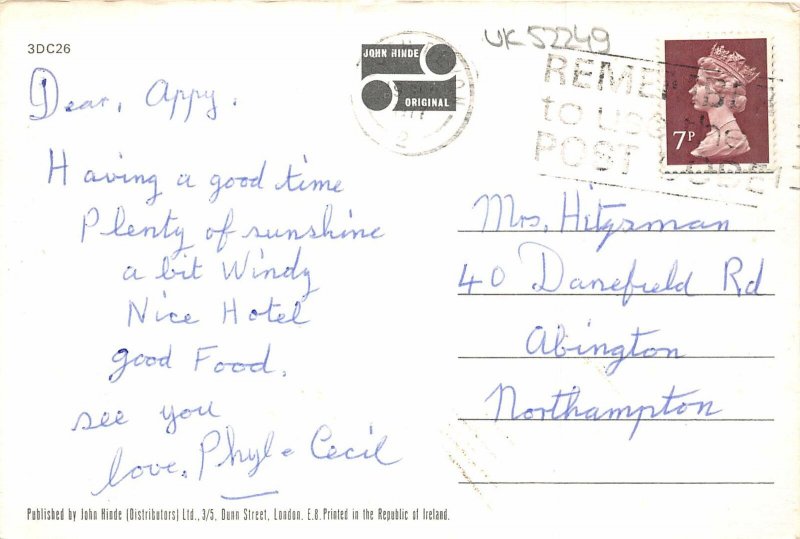 3DC26
JOHN HINDE
ORIGINAL
UK 52249
REMEMBER
to use the
POST CODE
7P
Dear, Appy.
Having a good time
Plenty of sunshine
a bit Windy
Nice Hotel
good Food.
see you
love. Phyl & Cecil
Mrs. Hitgsman
40 Danefield Rd
Abington
Northampton
Published by John Hinde (Distributors) Ltd., 3/5, Dunn Street, London. E.8. Printed in the Republic of Ireland.